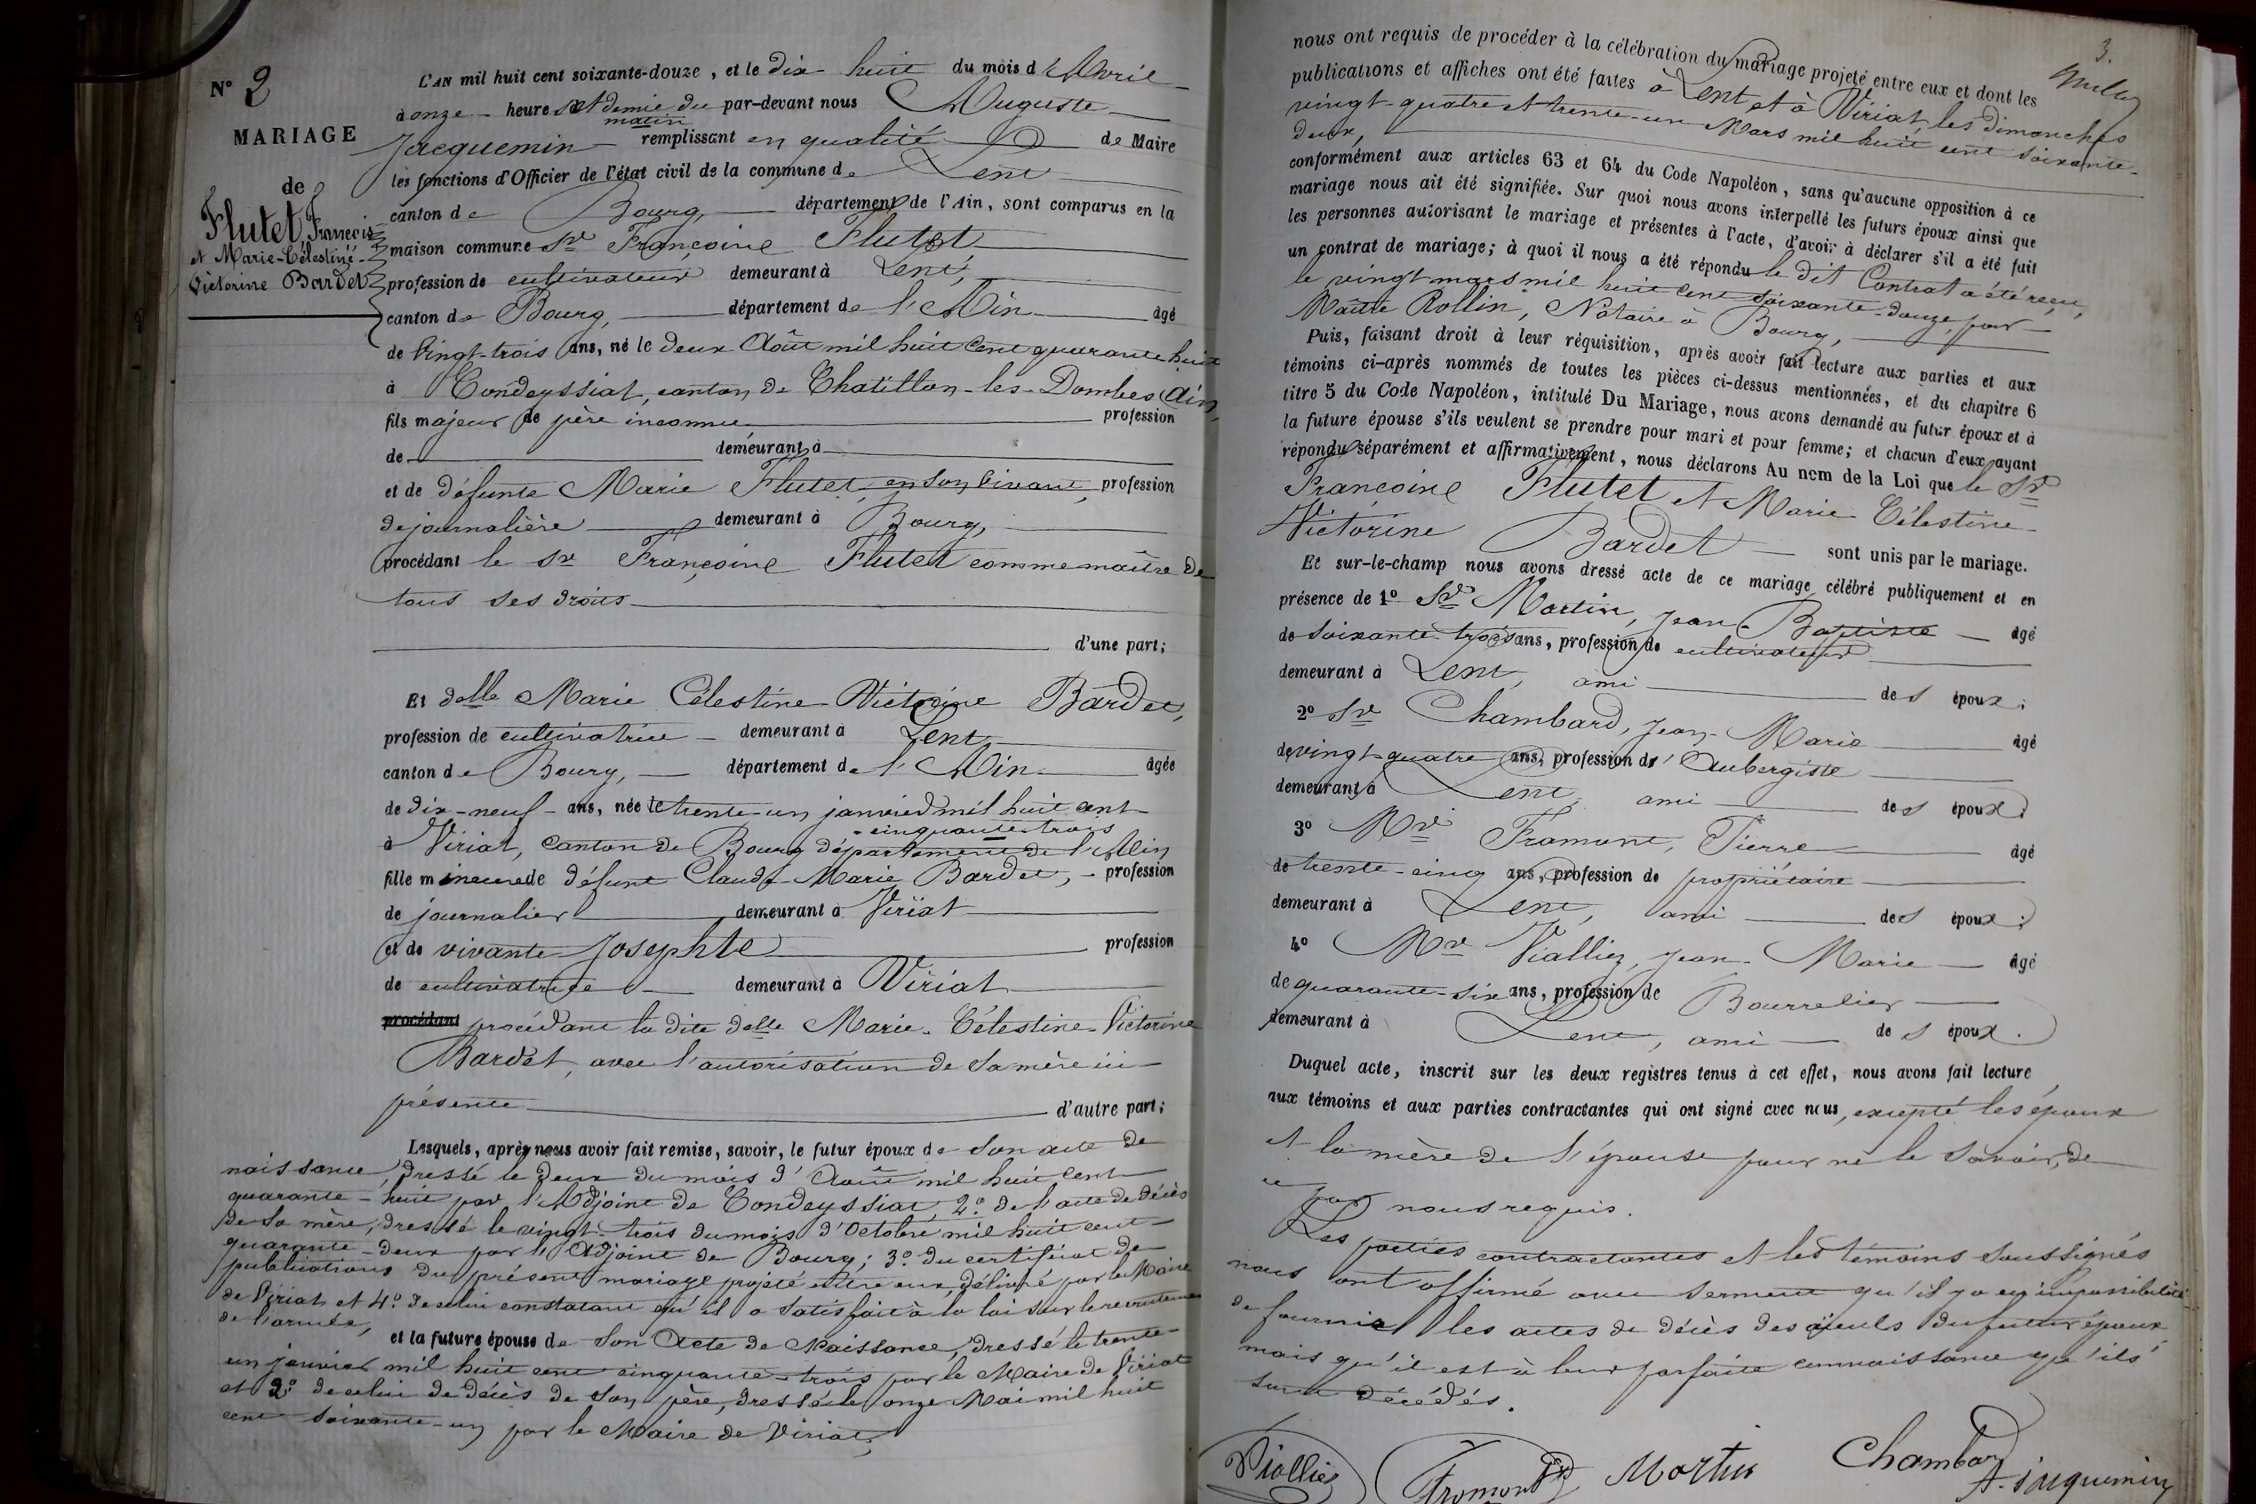 N° 2
MARIAGE
de
Flutet François
et Marie-Célestine-
Victorine Bardet
L'AN mil huit cent soixante-douze, et le dix-huit du mois d'Avril
à onze heures et demie du matin par-devant nous Auguste
Jacquemin remplissant en qualité de Maire
les fonctions d'Officier de l'état civil de la commune de Lent
canton de Bourg, département de l'Ain, sont comparus en la
maison commune Sr Françoine Flutet
profession de cultivateur demeurant à Lent,
canton de Bourg, département de l'Ain âgé
de vingt-trois ans, né le deux Août mil huit cent quarante huit
à Condeyssiat, canton de Chatillon-les-Dombes (Ain)
fils majeur de père inconnu profession
de demeurant à
et de défunte Marie Flutet, en son vivant, profession
de journalière demeurant à Bourg,
procédant le Sr Françoine Flutet comme maître de
tous ses droits
d'une part;
Et delle Marie Célestine Victorine Bardet,
profession de cultivatrice demeurant à Lent
canton de Bourg, département de l'Ain âgée
de dix-neuf ans, née le trente-un janvier mil huit cent
cinquante-trois
à Viriat, canton de Bourg département de l'Ain
fille mineure de défunt Claude-Marie Bardet, profession
de journalier demeurant à Viriat
et de vivante Josephte profession
de cultivatrice demeurant à Viriat
procédant procédant la dite delle Marie-Célestine-Victorine
Bardet, avec l'autorisation de sa mère ici
présente d'autre part;
Lesquels, après nous avoir fait remise, savoir, le futur époux de son acte de
naissance, dressé le deux du mois d'Août mil huit cent
quarante-huit par l'Adjoint de Condeyssiat, 2° de l'acte de décès
de sa mère, dressé le vingt-trois du mois d'Octobre mil huit cent
quarante-deux par l'Adjoint de Bourg; 3° du certificat de
publications du présent mariage projeté entre eux, délivré par le Maire
de Viriat et 4° de celui constatant qu'il a satisfait à la loi sur le recrutement
de l'armée,
et la future épouse de son Acte de Naissance, dressé le trente-
un janvier mil huit cent cinquante-trois par le Maire de Viriat
et 2° de celui de décès de son père, dressé le onze Mai mil huit
cent soixante-un par le Maire de Viriat,
3.
nous ont requis de procéder à la célébration du mariage projeté entre eux et dont les
publications et affiches ont été faites à Lent et à Viriat, les dimanches
vingt-quatre et trente-un Mars mil huit cent soixante-
douze,
conformément aux articles 63 et 64 du Code Napoléon, sans qu'aucune opposition à ce
mariage nous ait été signifiée. Sur quoi nous avons interpellé les futurs époux ainsi que
les personnes autorisant le mariage et présentes à l'acte, d'avoir à déclarer s'il a été fait
un contrat de mariage; à quoi il nous a été répondu le dit Contrat a été reçu,
le vingt mars mil huit cent soixante-douze, par
Maître Rollin, Notaire à Bourg,
Puis, faisant droit à leur réquisition, après avoir fait lecture aux parties et aux
témoins ci-après nommés de toutes les pièces ci-dessus mentionnées, et du chapitre 6
titre 5 du Code Napoléon, intitulé Du Mariage, nous avons demandé au futur époux et à
la future épouse s'ils veulent se prendre pour mari et pour femme; et chacun d'eux ayant
répondu séparément et affirmativement, nous déclarons Au nom de la Loi que le Sr
Françoine Flutet et Marie Célestine
Victorine Bardet sont unis par le mariage.
Et sur-le-champ nous avons dressé acte de ce mariage célébré publiquement et en
présence de 1° Sr Martin, Jean-Baptiste âgé
de soixante-trois ans, profession de cultivateur
demeurant à Lent, ami des époux;
2° Sr Chambard, Jean-Marie âgé
de vingt-quatre ans, profession d'Aubergiste
demeurant à Lent, ami des époux;
3° Mr Framont, Pierre âgé
de trente-cinq ans, profession de propriétaire
demeurant à Lent, ami des époux;
4° Mr Viallier, Jean-Marie âgé
de quarante-six ans, profession de Bourrelier
demeurant à Lent, ami des époux.
Duquel acte, inscrit sur les deux registres tenus à cet effet, nous avons fait lecture
aux témoins et aux parties contractantes qui ont signé avec nous, excepté les époux
et la mère de l'épouse pour ne le savoir, de
ce par nous requis.
Les parties contractantes et les témoins soussignés
nous ont affirmé avec serment qu'il y a eu impossibilité
de fournir les actes de décès des ayeuls du futur époux
mais qu'il est à leur parfaite connaissance qu'ils
sont décédés.
Viallier Fromont Martin Chambard
A. Jacquemin